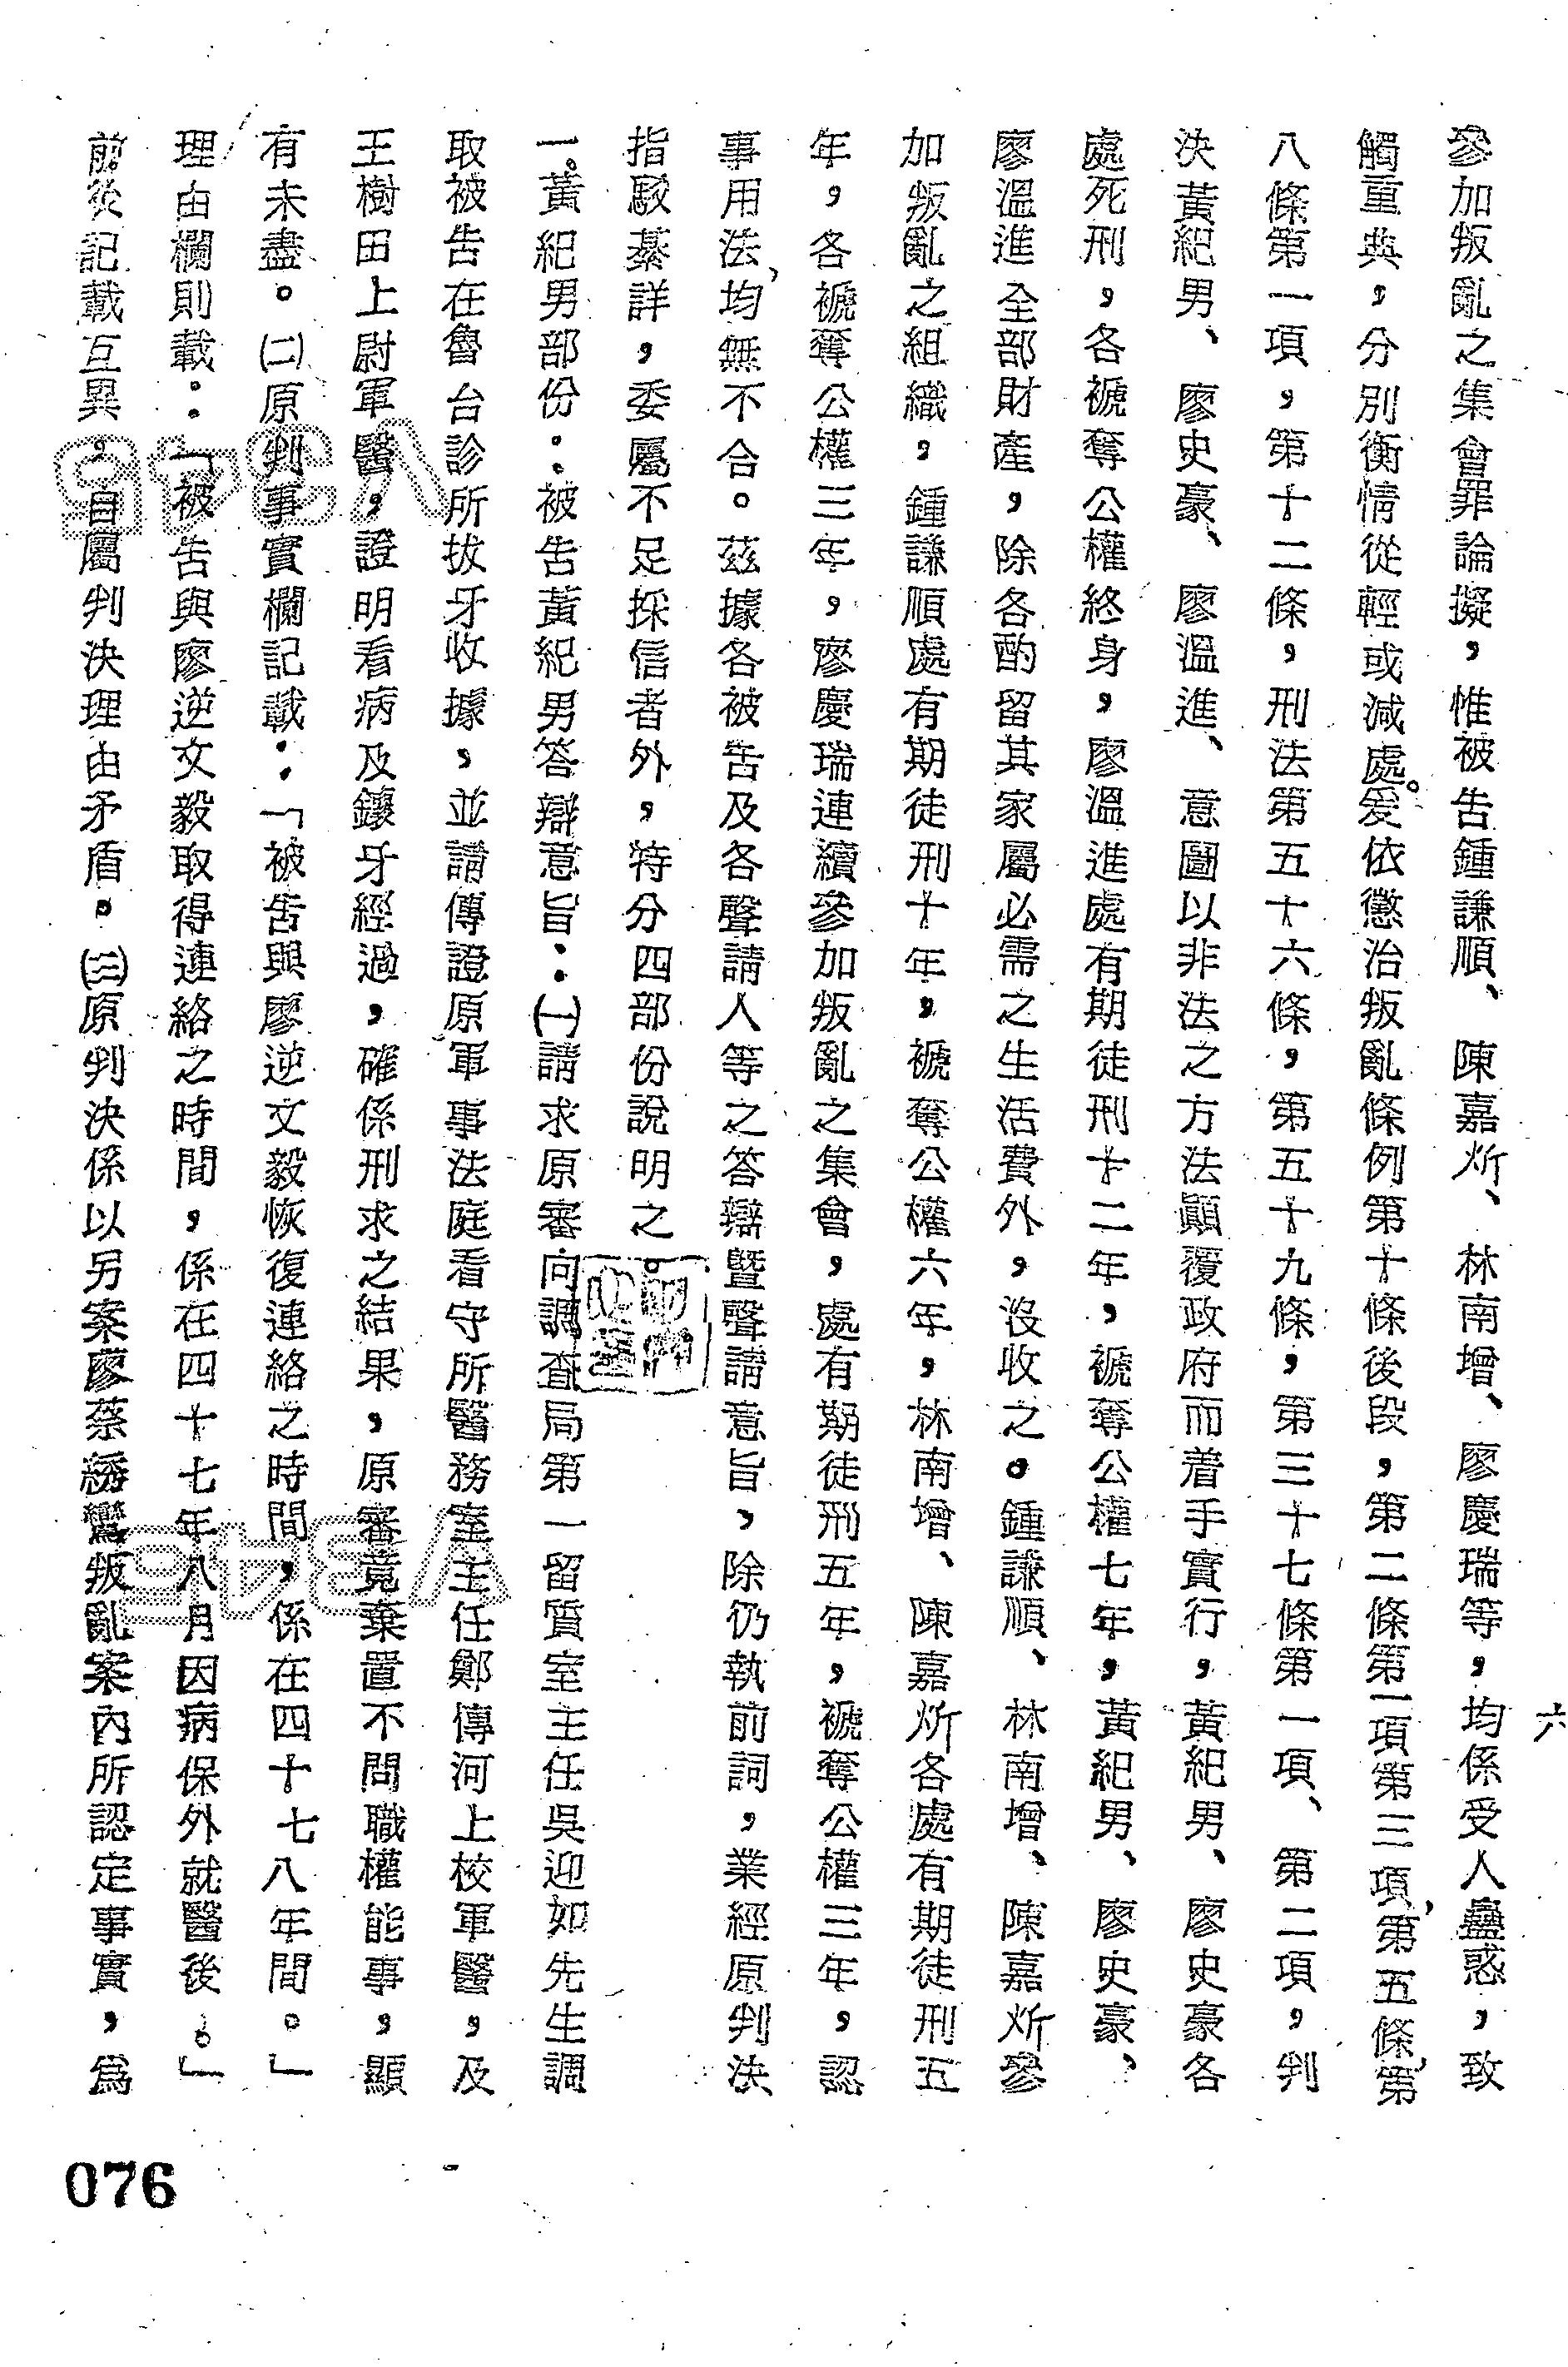 六
參加叛亂之集會罪論擬，惟被告鍾謙順、陳嘉炘、林南增、廖慶瑞等，均係受人蠱惑，致
觸重典，分別衡情從輕或減處。爰依懲治叛亂條例第十條後段，第二條第一項第三項，第五條，第
八條第一項，第十二條，刑法第五十六條，第五十九條，第三十七條第一項、第二項，判
決黃紀男、廖史豪、廖溫進、意圖以非法之方法顛覆政府而着手實行，黃紀男、廖史豪各
處死刑，各褫奪公權終身，廖溫進處有期徒刑十二年，褫奪公權七年，黃紀男、廖史豪、
廖溫進全部財產，除各酌留其家屬必需之生活費外，沒收之。鍾謙順、林南增、陳嘉炘參
加叛亂之組織，鍾謙順處有期徒刑十年，褫奪公權六年，林南增、陳嘉炘各處有期徒刑五
年，各褫奪公權三年，廖慶瑞連續參加叛亂之集會，處有期徒刑五年，褫奪公權三年，認
事用法，均無不合。茲據各被告及各聲請人等之答辯暨聲請意旨，除仍執前詞，業經原判決
指駁綦詳，委屬不足採信者外，特分四部份說明之。
一。黃紀男部份：被告黃紀男答辯意旨：㈠請求原審向調查局第一留質室主任吳迎如先生調
取被告在魯台診所拔牙收據，並請傳證原軍事法庭看守所醫務室主任鄭傳河上校軍醫，及
王樹田上尉軍醫，證明看病及鑲牙經過，確係刑求之結果，原審竟棄置不問職權能事，顯
有未盡。㈡原判事實欄記載：「被告與廖逆文毅恢復連絡之時間，係在四十七八年間。」
理由欄則載：「被告與廖逆文毅取得連絡之時間，係在四十七年八月因病保外就醫後。」
前後記載互異，自屬判決理由矛盾。㈢原判決係以另案廖蔡綉鸞叛亂案內所認定事實，為
076